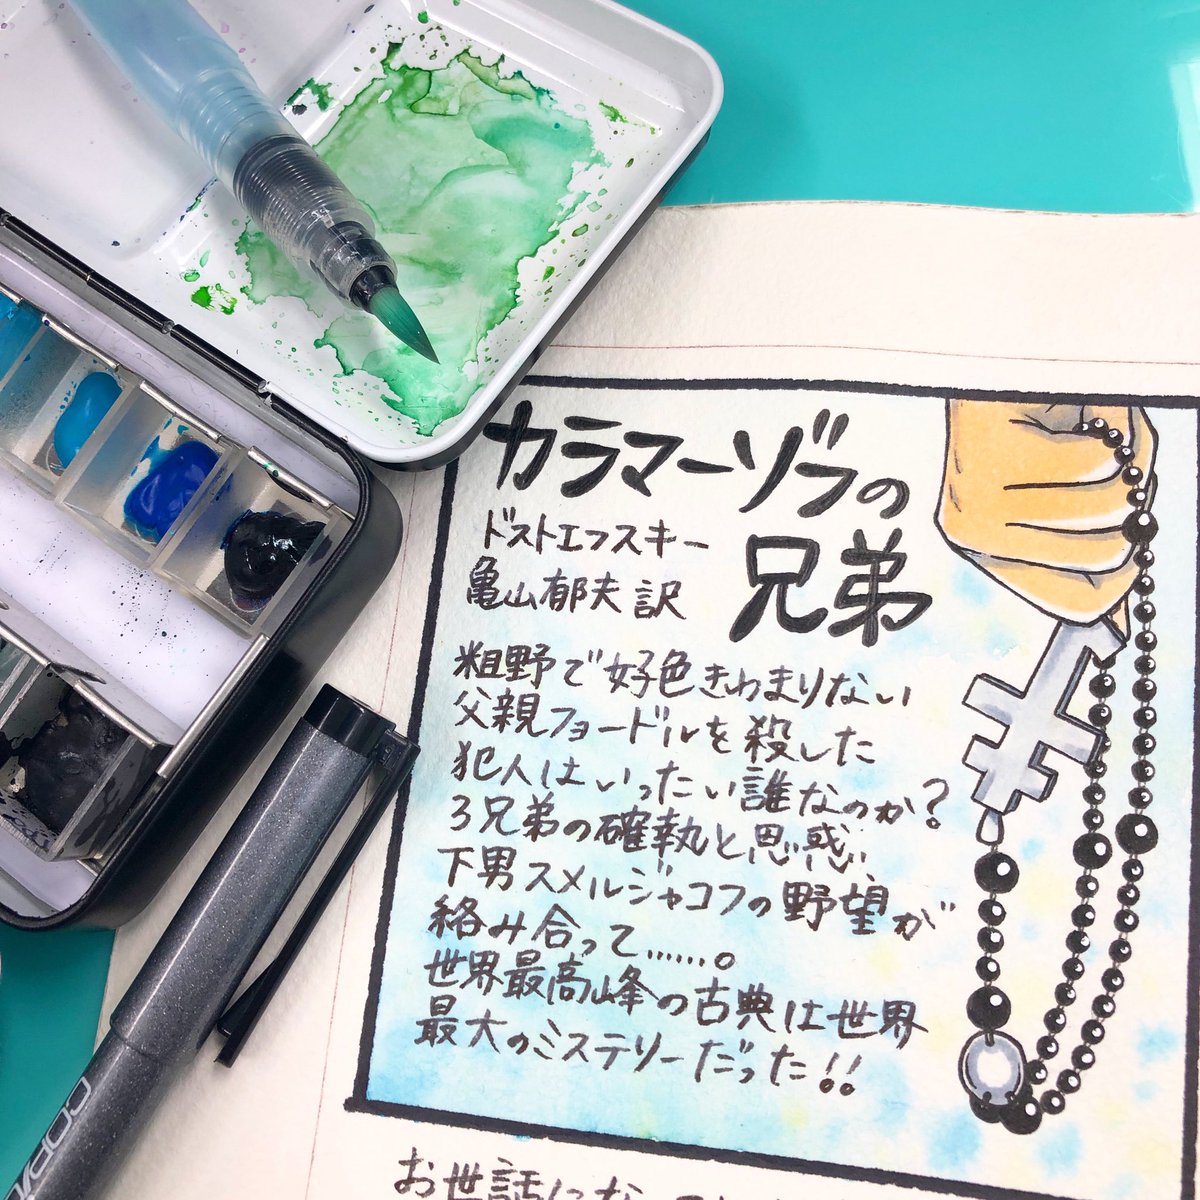 カラマーゾフの
兄弟
ドストエフスキー
亀山郁夫 訳
粗野で好色きわまりない
父親フョードルを殺した
犯人はいったい誰なのか?
3兄弟の確執と思惑、
下男スメルジャコフの野望が
絡み合って……。
世界最高峰の古典は世界
最大のミステリーだった!!
お世話になっ